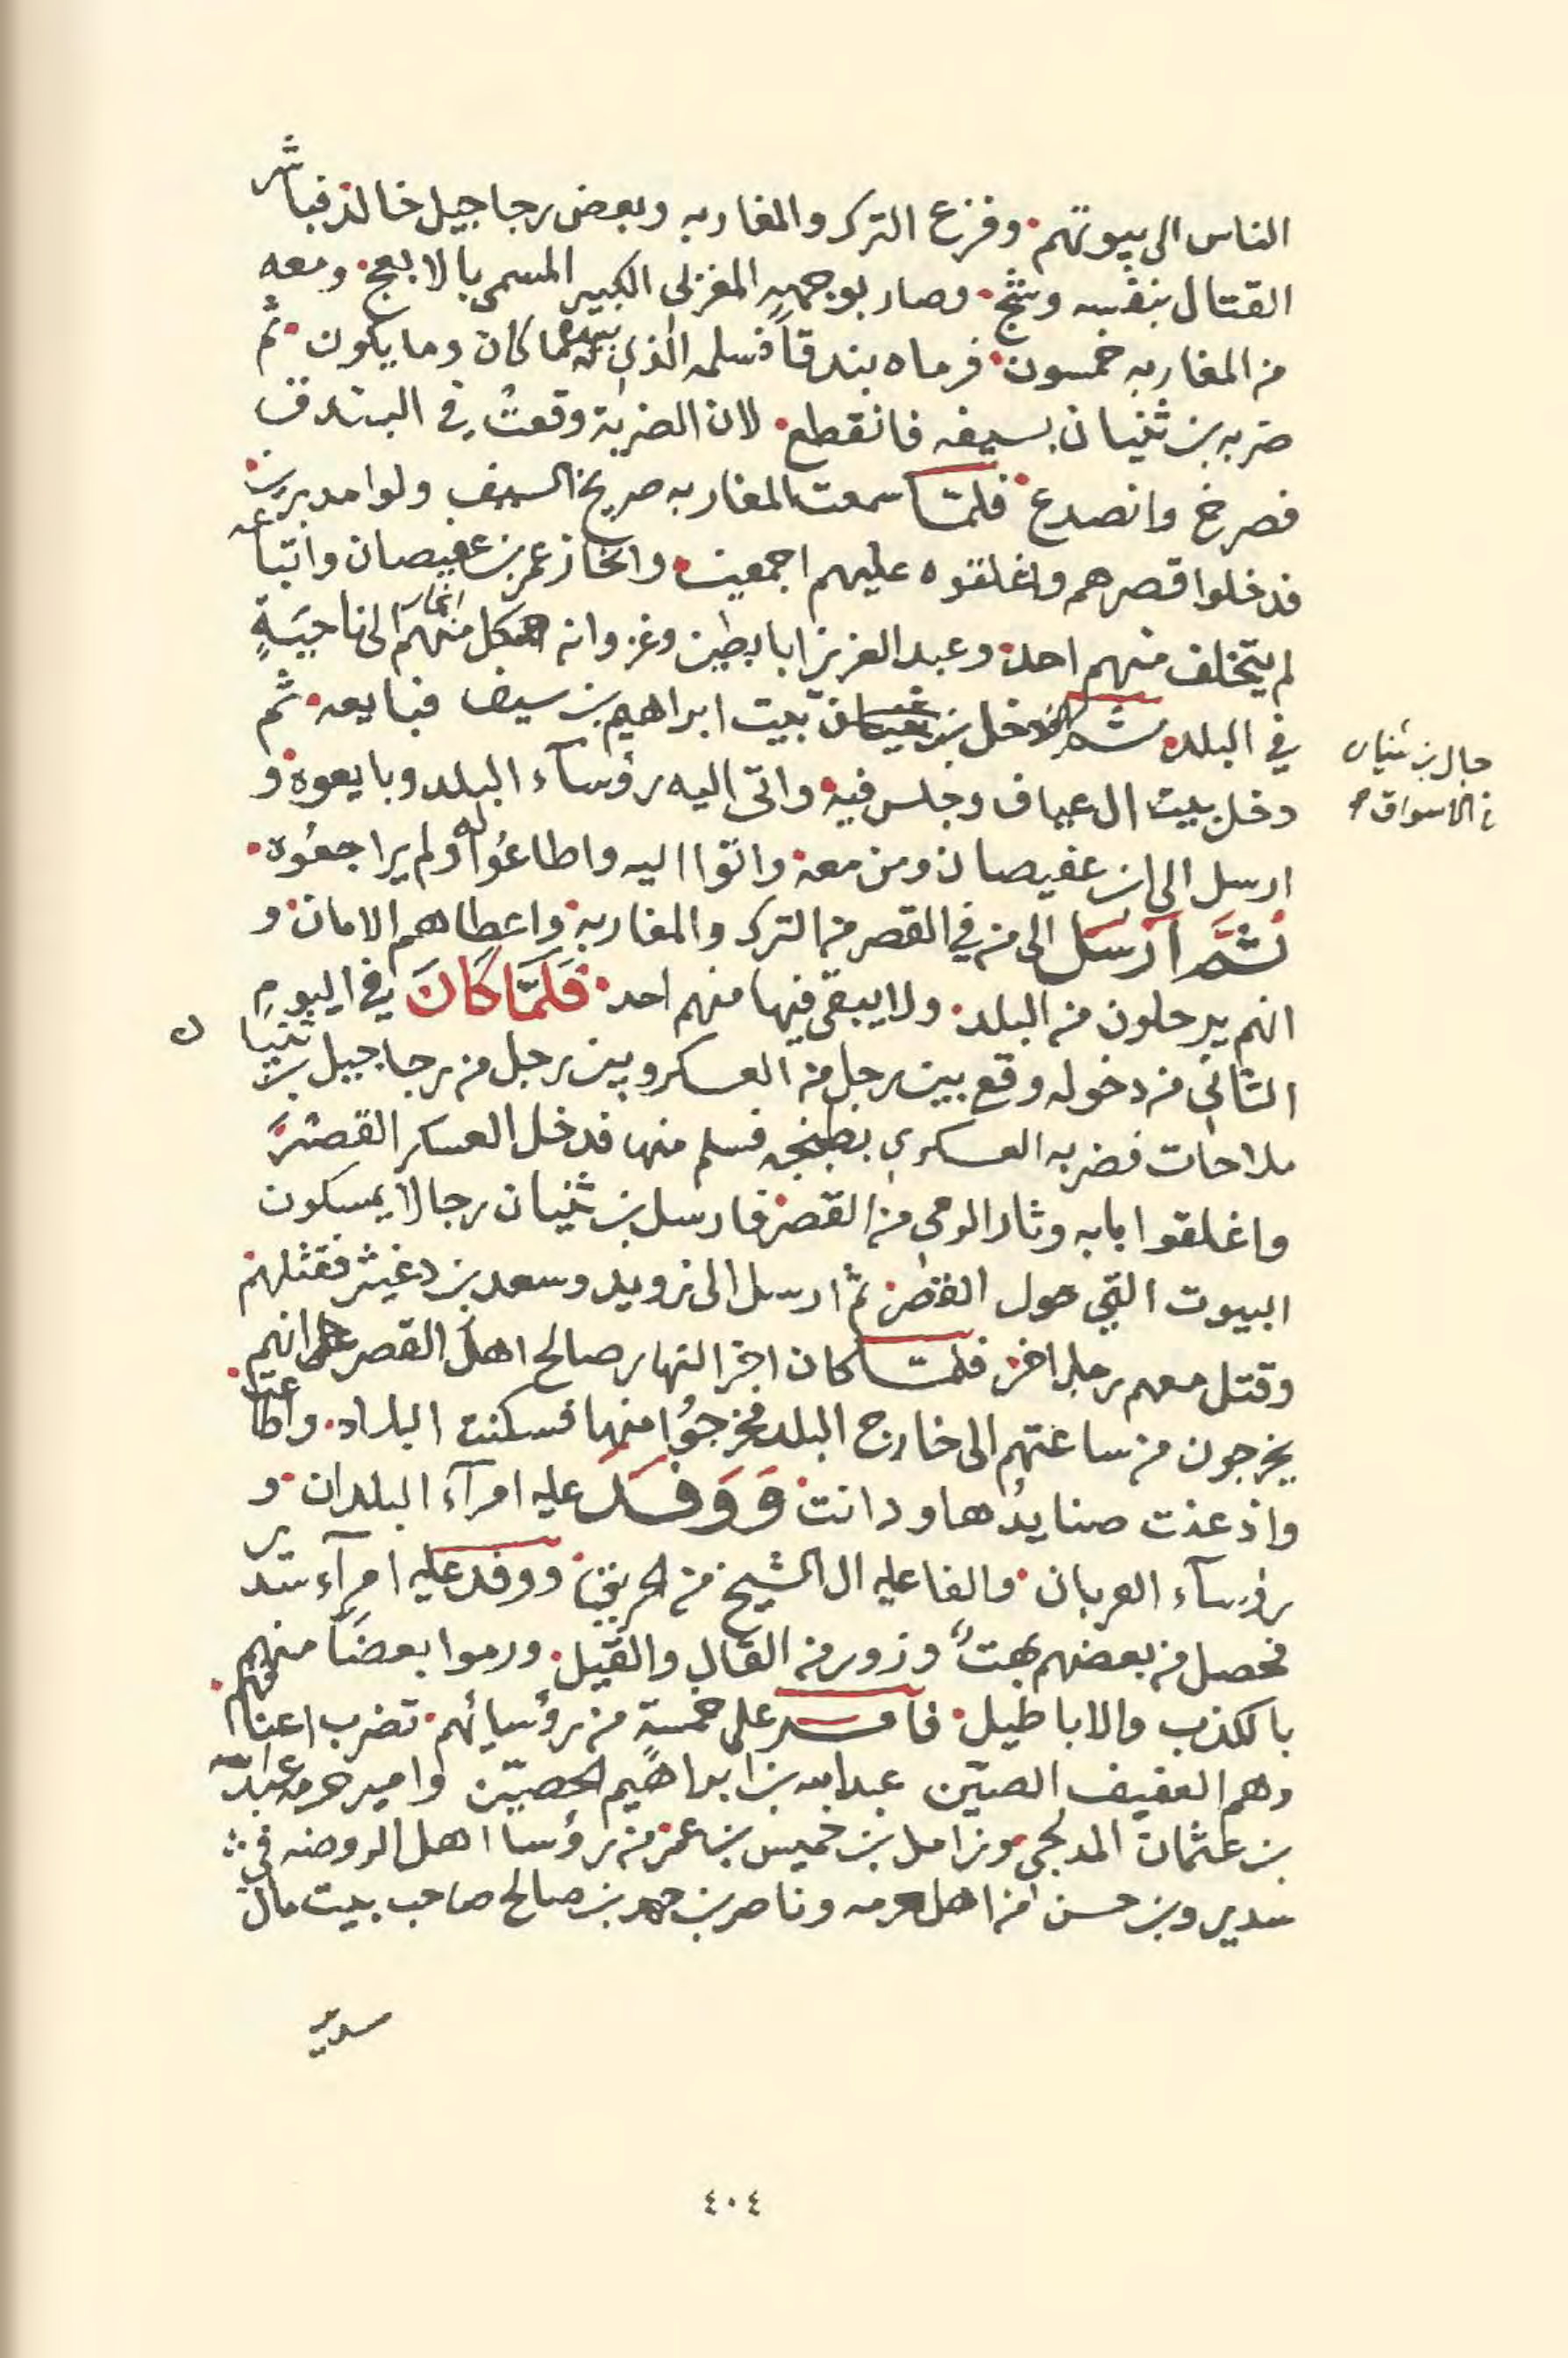 الناس الى بيوتهم وفزع الترك والمغاربه وبعض رجاجيل خالد فباشر
القتال بنفسه وشج وصار بوجهه المغربي الكبير المسمى بالابعج ومعه
من المغاربه خمسون فرماه ببندق فسلمه الذي بيده ما كان وما يكون ثم
ضربه بن ثنيان بسيفه فانقطع لان الضربة وقعت في البندق
فصرخ وانصدع فلما سمعت المغاربه صريخ السيف ولوا مدبرين
فدخلوا قصرهم واغلقوه عليهم اجمعين وانحاز عمر بن عفيصان واتباعه
لم يتخلف منهم احد وعبد العزيز ابابطين وغزوانه كل منهم انحاز الى ناحيةٍ
في البلد ثم دخل بن ثنيان بيت ابراهيم بن سيف فبايعه ثم
جال بن ثنيان
في الاسواق
دخل بيت ال عياف وجلس فيه واتى اليه رؤسآء البلد وبايعوه و
ارسل الى ابن عفيصان ومن معه واتوا اليه واطاعوا له ولم يراجعوه
ثم أرسل الى من في القصر من الترك والمغاربه واعطاهم الامان و
انهم يرحلون من البلد ولا يبقى فيها منهم احد فلما كان في اليوم
الثاني من دخوله وقع بين رجل من العسكر وبين رجل من رجاجيل بن ثنيان
ملاحات فضربه العسكري بطبنجه فسلم منها فدخل العسكر القصر
واغلقوا بابه وثار الرمي من القصر فارسل بن ثنيان رجالا يمسكون
البيوت التي حول القصر ثم ارسل الى زويد وسعد بن دغيثر فقتلهم
وقتل معهم رجل اخر فلما كان اخر النهار صالح اهل القصر على انهم
يخرجون من ساعتهم الى خارج البلد فخرجوا منها فسكنت البلاد واطاعت
واذعنت صناديدها ودانت ووفد عليه امرآء البلدان و
رؤسآء العربان والفا عليه ال الشيخ من الحريق ووفد عليه امرآء سدير
فحصل من بعضهم بهتٌ وزور من القال والقيل ورموا بعضاً منهم
بالكذب والاباطيل فامر على خمسةٍ من رؤسائهم تضرب اعناقهم
وهم العفيف الصيّن عبدالله بن ابراهيم الحصيّن وامير حرمه عبدالله
بن عثمان المدلجي وزامل بن خميس بن عمر من رؤسا اهل الروضه في
سدير وبن حسن من اهل حرمه وناصر بن حمد بن صالح صاحب بيت مال
سدير
٤٠٤